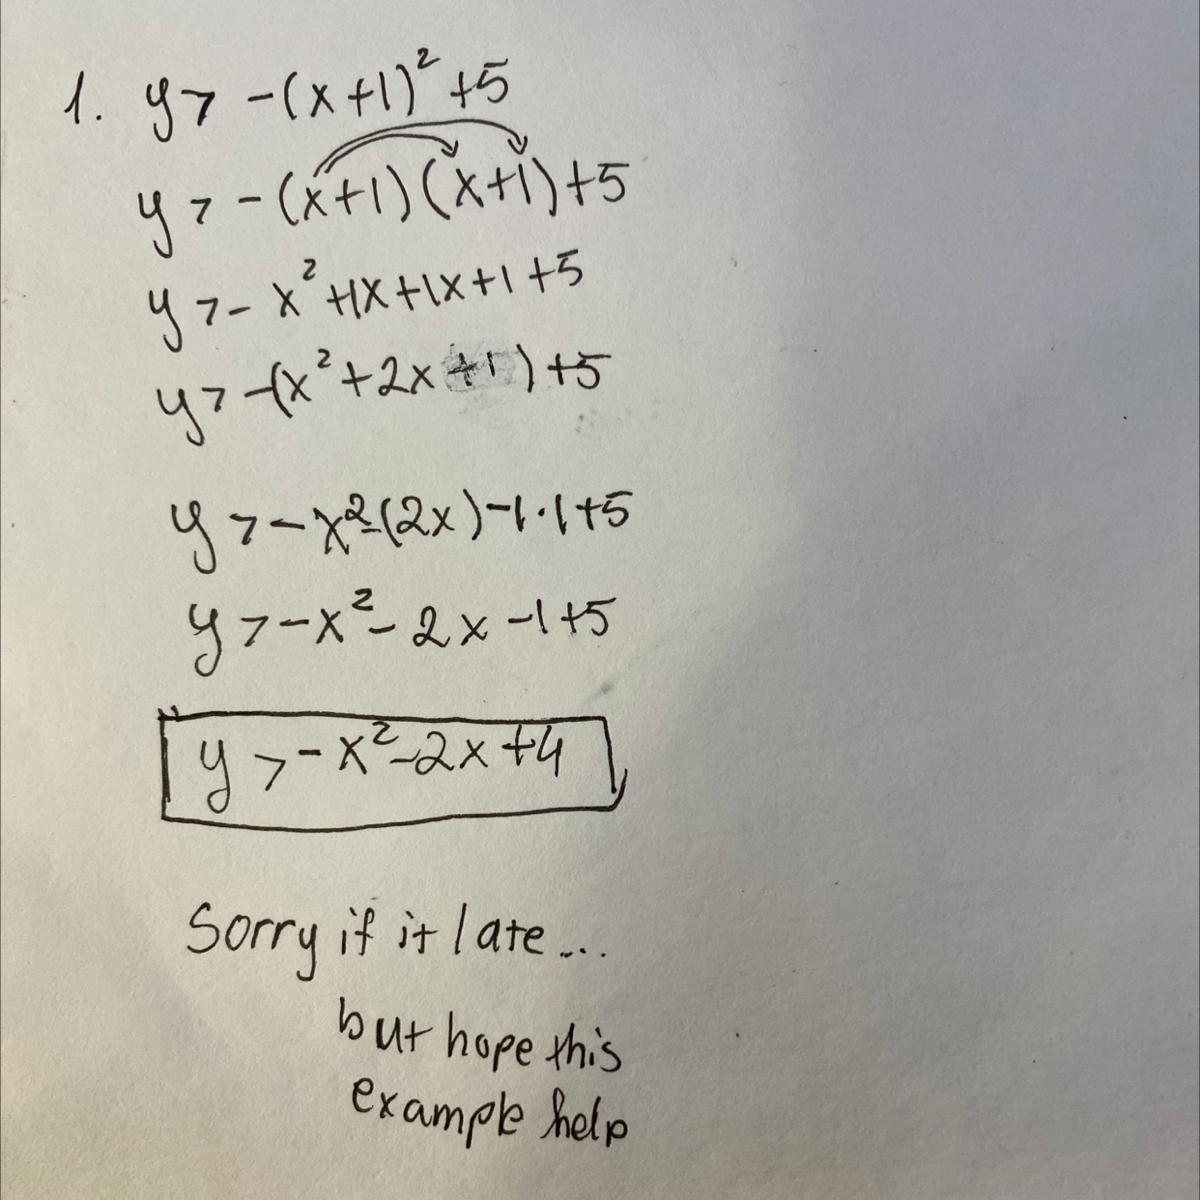 1. y > -(x+1)² +5
y > -(x+1)(x+1)+5
y > - x² +1x+1x+1+5
y > -(x²+2x+1)+5
y > -x²-(2x)-1·1+5
y > -x²-2x-1+5
y > -x²-2x+4
Sorry if it late...
but hope this
example help